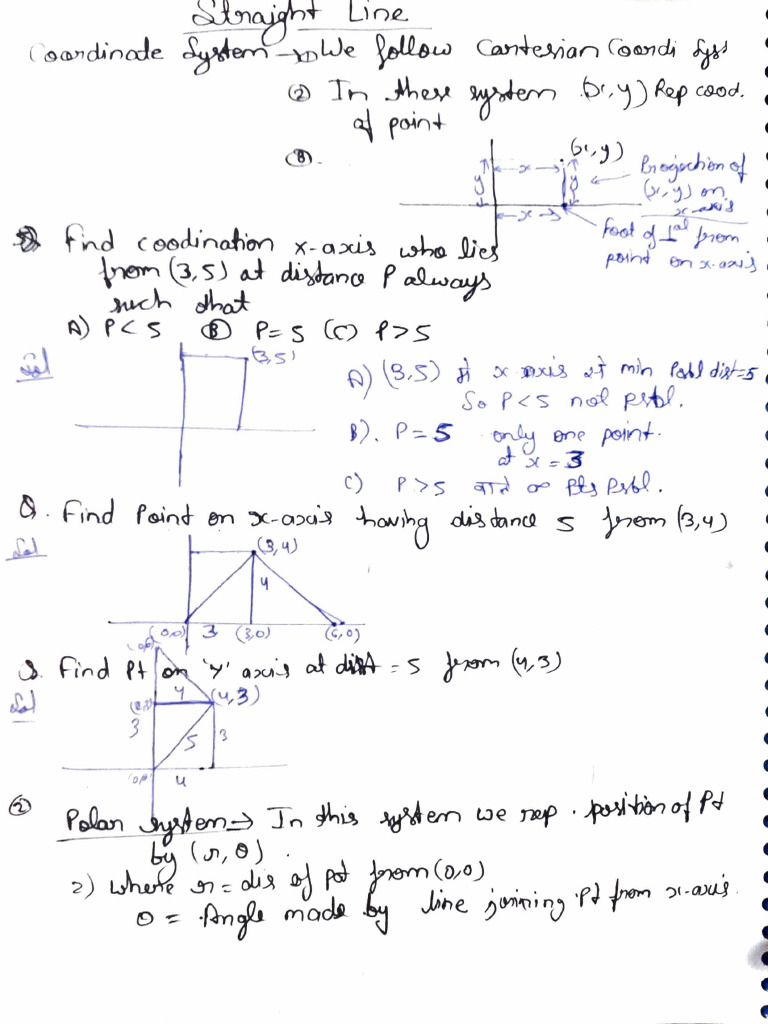 Straight Line
Coordinate System → 1) We follow Cartesian Coordi Sys
(2) In these system (x,y) Rep cood.
of point
(3).
(x,y)
x
y
y
x
Projection of
(x,y) on
x-axis
foot of ⊥al from
point on x-axis
Find coodination x-axis who lies
from (3,5) at distance P always
such that
A) P<5 (B) P=5 (C) P>5
Sol
(3,5)
A) (3,5) से x axis की min Psbl dist=5
So P<5 not psbl.
B). P=5 only one point.
at x=3
C) P>5 वाले ∞ Pts Psbl.
Q. Find Point on x-axis having distance 5 from (3,4)
Sol
(3,4)
4
(0,0) 3 (3,0) (6,0)
Q. Find Pt on 'y' axis at dist = 5 from (4,3)
Sol
4 (4,3)
3
5
3
(0,0)
4
(2) Polar system → In this system we rep. position of Pt
by (r,θ).
2) where r = dis of pot from (0,0)
θ = Angle made by line joining Pt from x-axis.